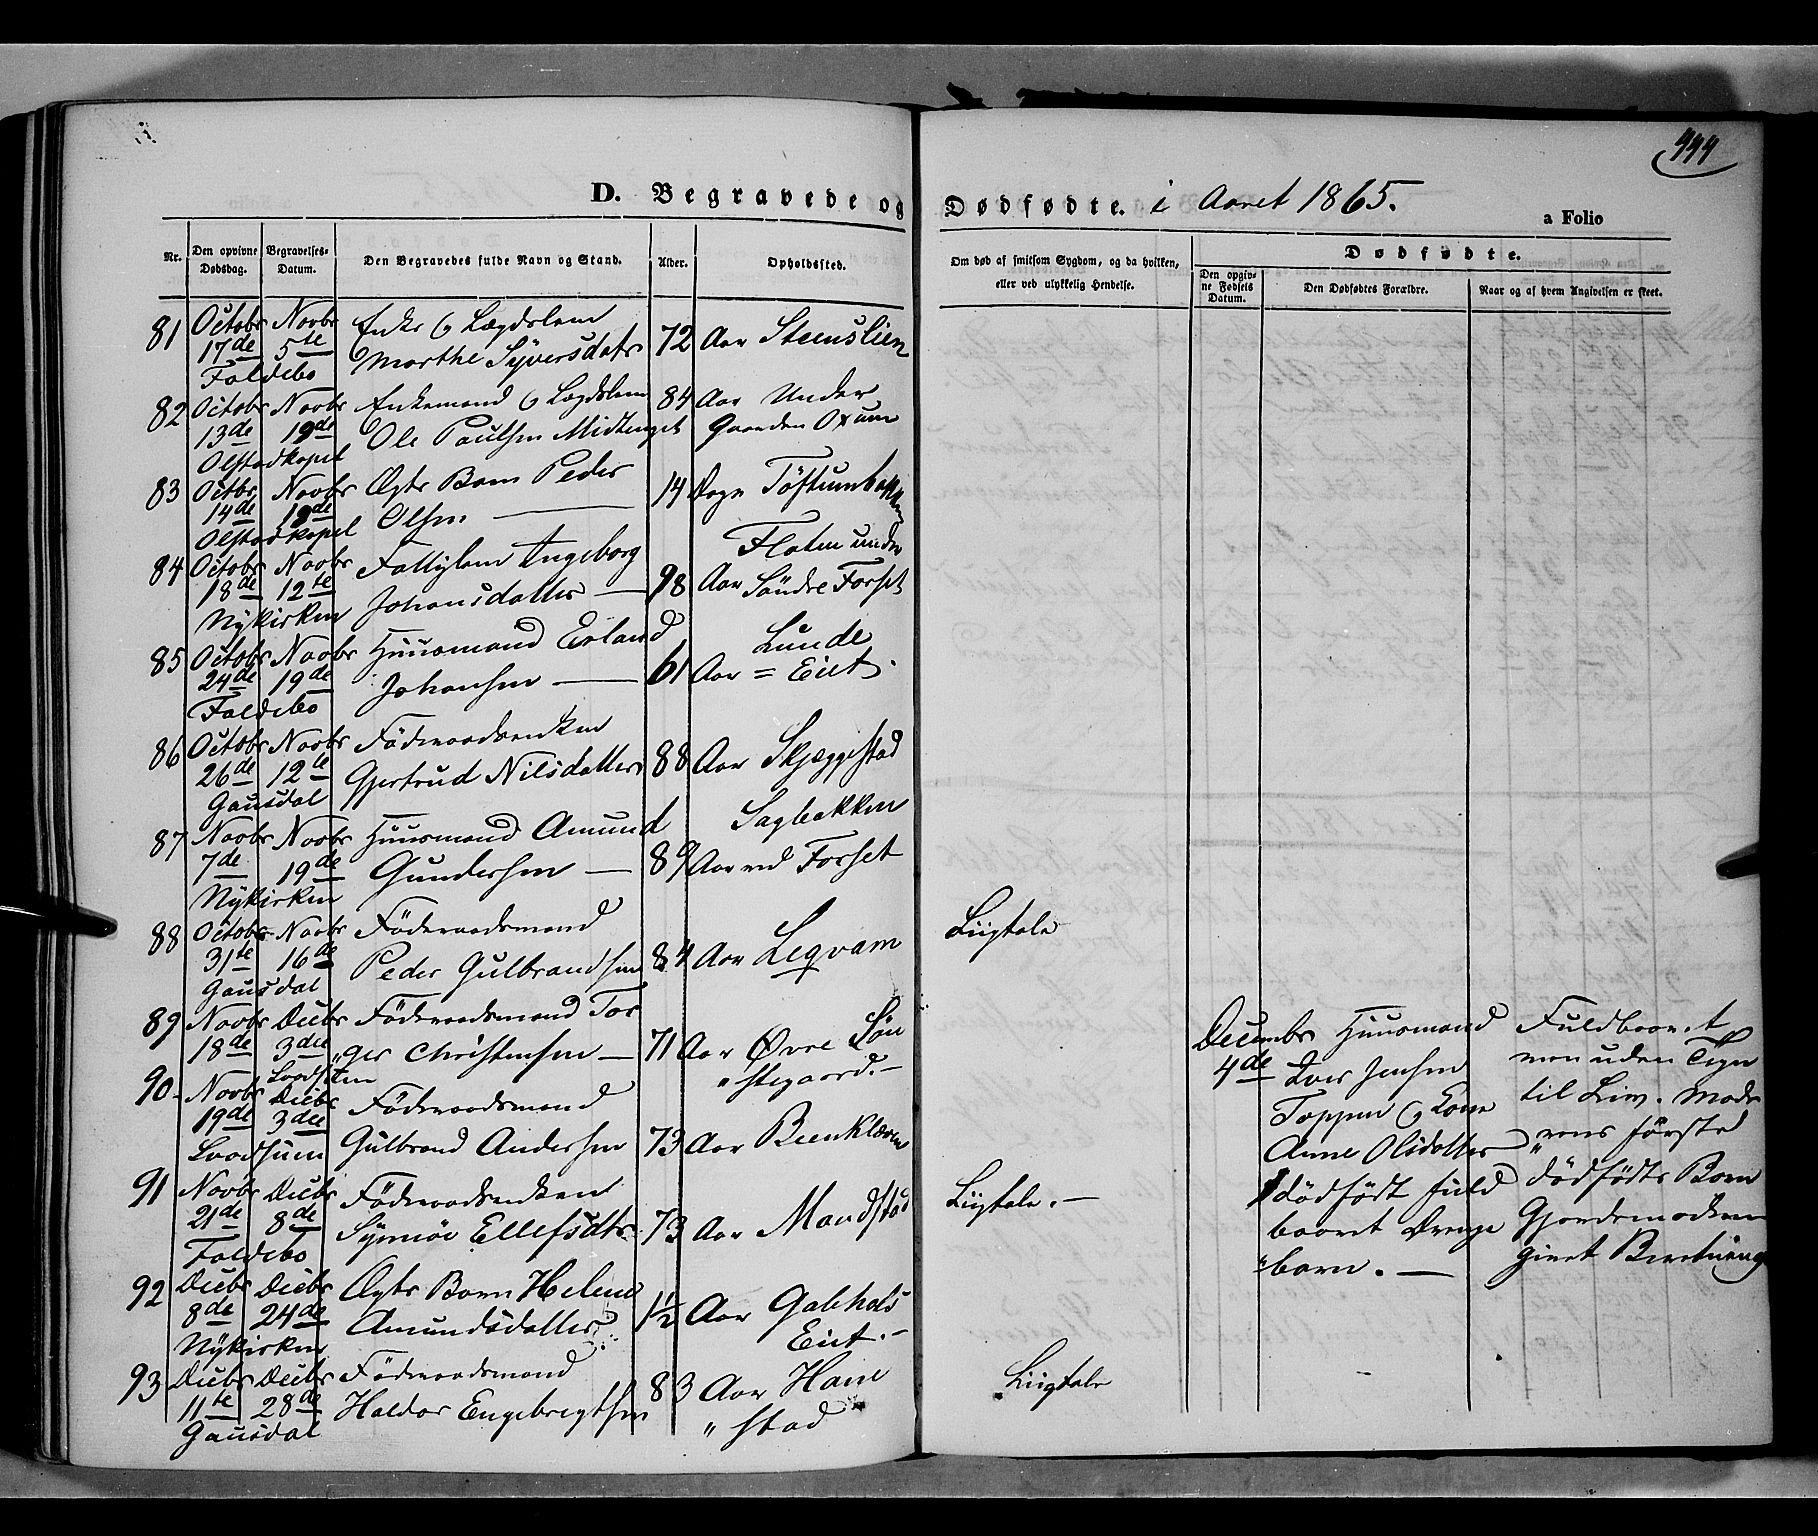 D. Begravede og Dødfødte. i Aaret 1865.
a Folio
Nr.
Den opgivne Dødsdag.
Begravelses-Datum.
Den Begravedes fulde Navn og Stand.
Alder.
Opholdssted.
Om død af smitsom Sygdom, og da hvilken, eller ved ulykkelig Hendelse.
Dødfødte.
Den opgivne Fødsels Datum.
Den Dødfødtes Forældre.
Naar og af hvem Angivelsen er skeet.
81 Octobr Novbr Enke og Lægdslem
17de 5te Marthe Syversdatr 72 Aar Steenslien
Foldebo
82 Octobr Novbr Enkemand og Lægdslem 84 Aar Under
13de 19de Ole Paulsen Midtenget Gaarden Oxum
Olstadkapel
83 Octbr Novbr Ægte Barn Peder
14de 19de Olsen — 14 Dage Töftumbakken
Olstadkapel
84 Octobr Novbr Fattiglem Ingeborg Floten under
18de 12te Johansdatter — 98 Aar Söndre Forset
Nykirken
85 Octobr Novbr Huusmand Erland Lunde
24de 19de Johansen — 61 Aar = Eiet.
Foldebo
86 Octobr Novbr Föderaadsenken
26de 12te Gjertrud Nilsdatter 88 Aar Skjæggestad
Gausdal
87 Novbr Novbr Huusmand Amund Sagbakken
7de 19de Gundersen — 89 Aar ved Forset
Nykirken
88 Octobr Novbr Föderaadsmand
31te 16de Peder Gulbrandsen 84 Aar Leqvam
Gausdal
Liigtale
89 Novbr Decbr Föderaadsmand Tor
18de 3die „ger Christensen — 71 Aar Øvre Sön
„stegaard.—
90. Novbr Decbr Föderaadsmand
19de 3die Gulbrand Andersen 73 Aar
91 Novbr Decbr Föderaadsenken
21de 8de Synnöe Ellefsdtr. 73 Aar
Foldebo
Liigtale. —
92 Decbr Decbr Ægte Barn Helene
8de 24de Amundsdatter 1½ Aar
Nykirken Eiet.—
93 Decbr Decbr Föderaadsmand
11te 28de Haldor Engebregtsen 83 Aar Haue
Gausdal „stad
Liigtale
Decembr Huusmand
4de Iver Jensen
Toppen og Kone
Anne Olsdatter
1 dödfödt fuld
baaret Drenge
„barn. —
Fuldbaaret
men uden Tegn
til Liv. Mode
„rens förste
dödfödte Barn
Gjordemoderen
givet Beretning